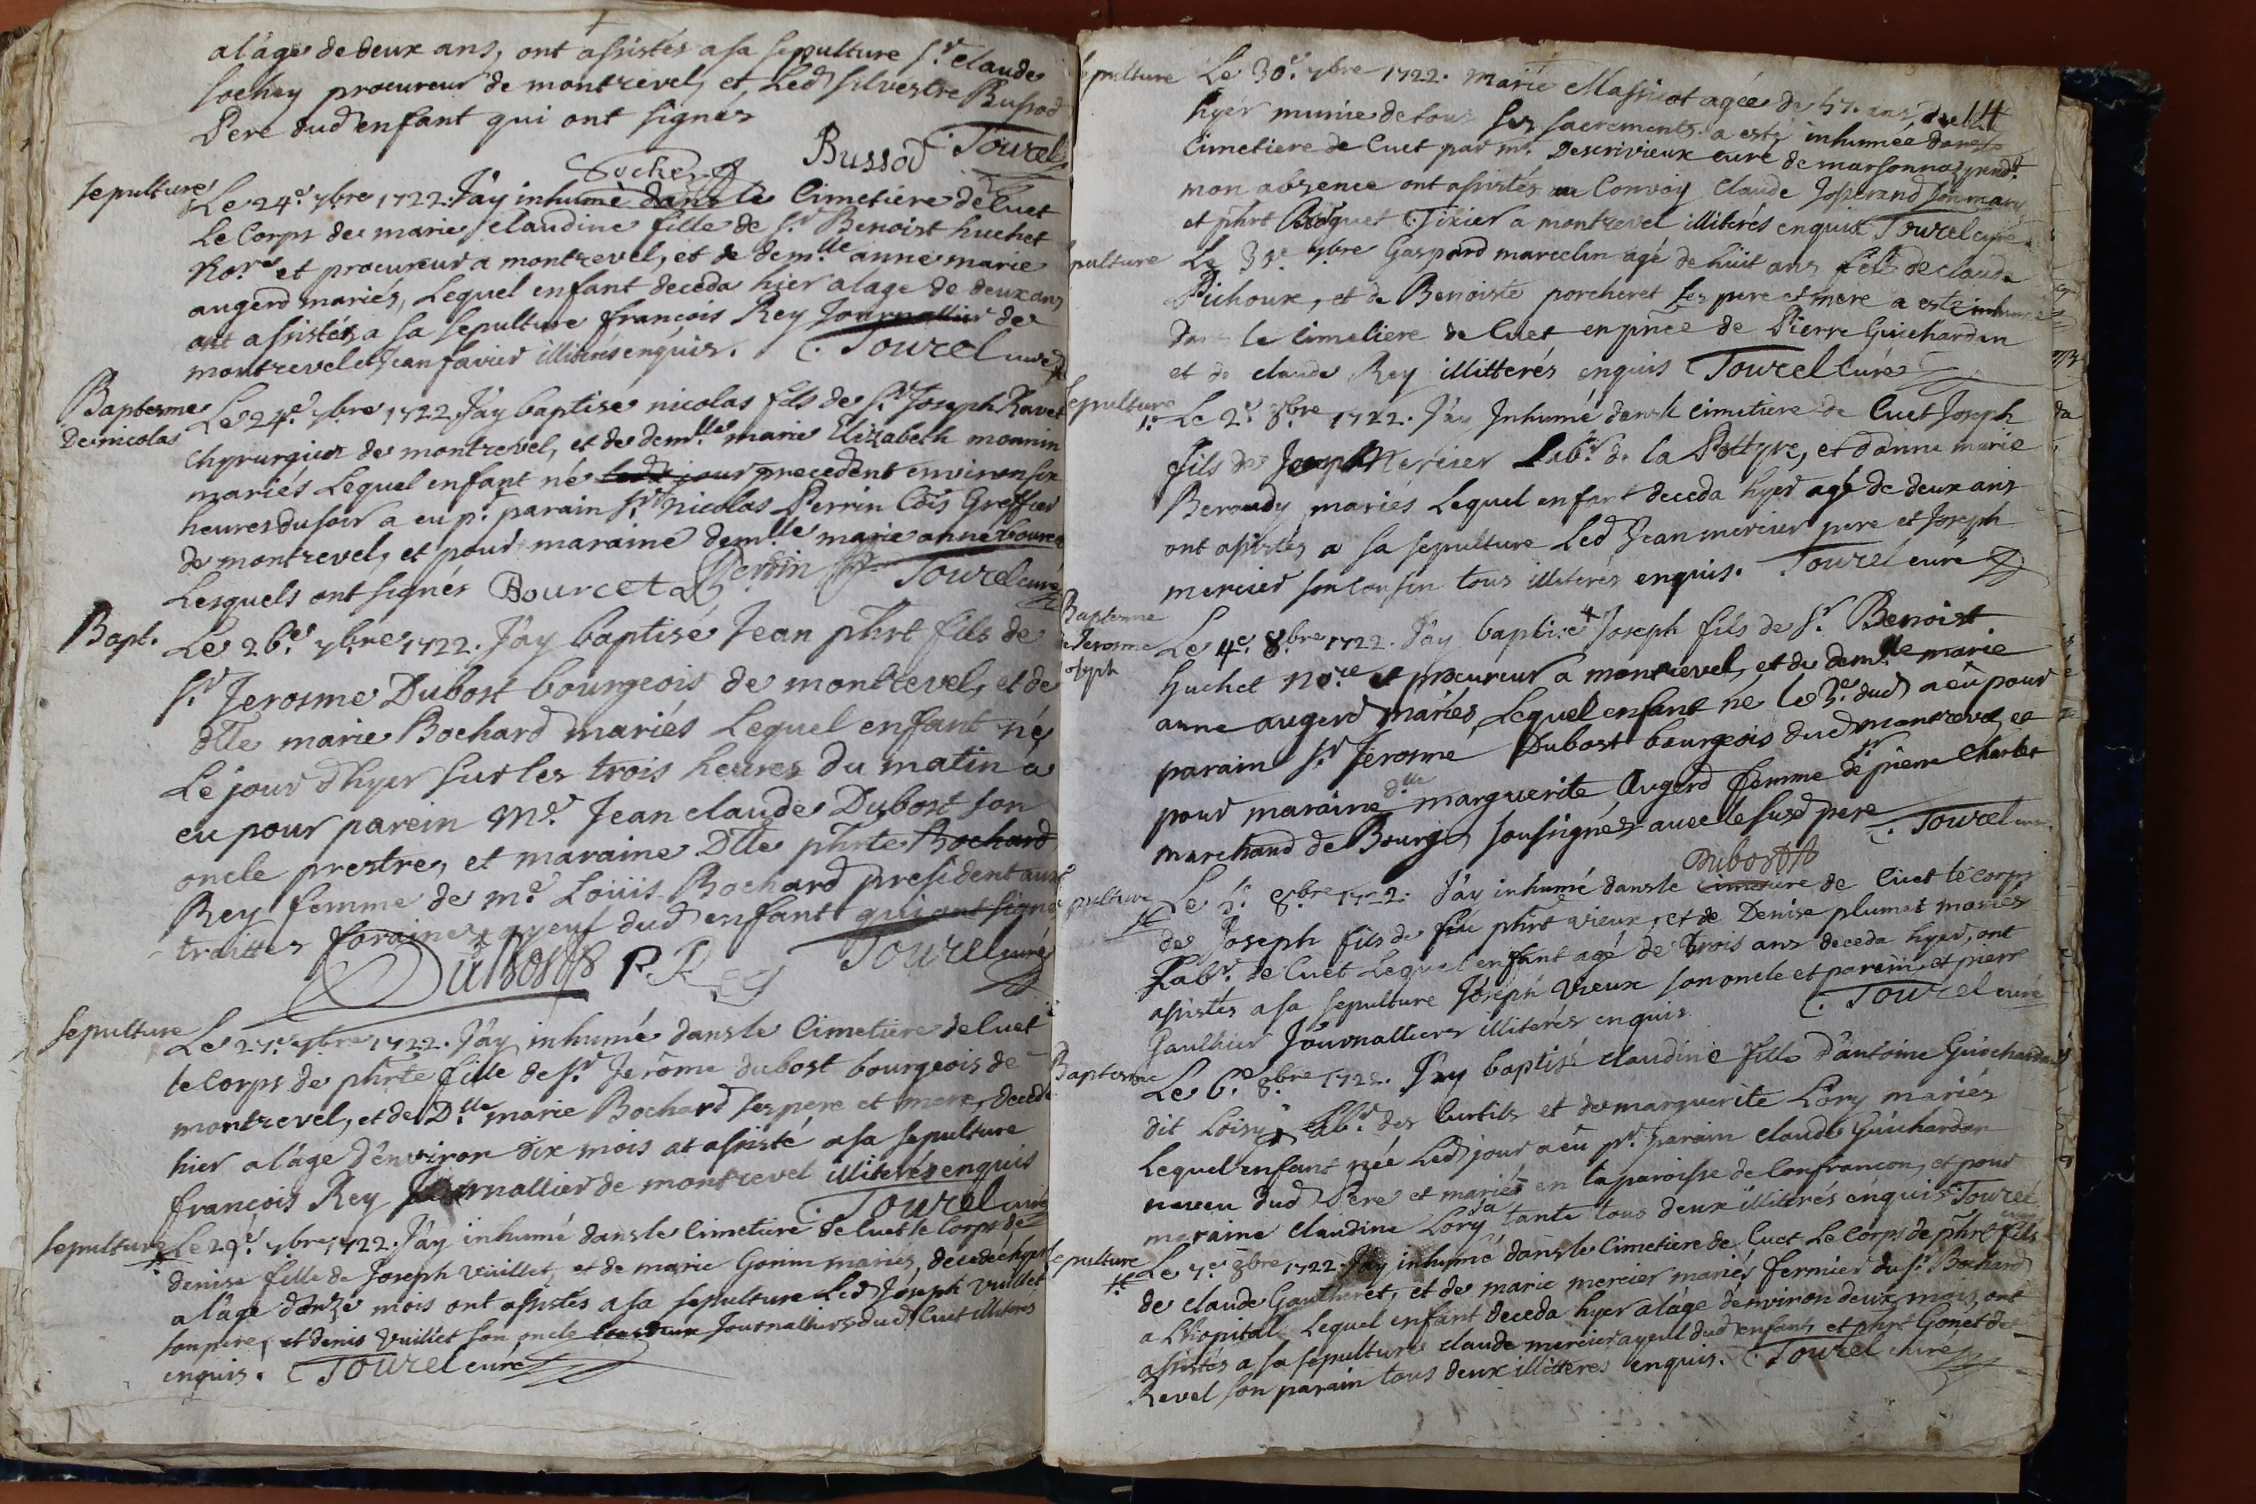 alâge de deux ans, ont assistés a sa sepulture Sr. Claude
sochay procureur de montrevel, et Led Silvestre Bussod
Pere dud enfant qui ont signés
Sochey Bussod Tourel
sepulture
Le 24e. 7bre 1722. J'ay inhumé dans le Cimetiere de Cuet
Le Corps de marie claudine fille de Sr. Benoist huchet
No.re et procureur a montrevel, et de dem.lle anne marie
augerd mariés, Lequel enfant deceda hier alage de deux ans
ont assistés a sa sepulture françois Rey Journallier de
montrevel et Jean favier illiterés enquis. Tourel curé
Baptesme
De nicolas
Le 24e. 7bre 1722 J'ay baptise nicolas fils de Sr. Joseph Ravet
chyrurgien de montrevel, et de dem.lle marie Elizabeth monnin
mariés Lequel enfant né precedent environ six
heures du soir a eu pr. parain Sr. nicolas Perrin Cõis Greffier
de montrevel, et pour maraine dem.lle marie anne bourcet
Lesquels ont signés Bourcet Perrin Tourel curé
Bapt.
Le 26e. 7bre 1722. J'ay baptisé Jean phrt fils de
Sr. Jerosme Dubost bourgeois de montrevel, et de
dlle marie Bochard mariés Lequel enfant né
Le jour d'hyer sur les trois heures du matin a
eu pour parein Mr. Jean claude Dubost son
oncle prestre, et maraine Dlle phrte Bochard
Rey femme de me. Loüis Bochard president aux
traittes foraines ayeul dud enfant qui ont signé
Dubost P. Rey Tourel curé
sepulture
Le 27e. 7bre 1722. J'ay inhumé dans le Cimetiere de Cuet
le corps de phrte fille de Sr. Jerôme dubost bourgeois de
montrevel, et de D.lle marie Bochard ses pere et mere, decedé
hier alâge d'environ dix mois at assisté asa sepulture
françois Rey Journallier de montrevel illiterés enquis
Tourel curé
sepulture
Le 29e. 7bre 1722. J'ay inhumé dans le Cimetiere de Cuet le Corps de
denise fille de Joseph vuillet, et de marie Gonin mariés, decedé hyer
alâge d'onze mois ont assistés asa sepulture Led Joseph vuillet
son pere, et denis vuillet son oncle Journalliers dud Cuet illiterés
enquis. Tourel curé
sepulture
Le 30e. 7bre 1722. Marie Massicot agée de 57. ans
hyer munie de tous ses sacrements a esté inhumée dans le
Cimetiere de Cuet par mr. Descrivieux curé de marsonnaz
mon absence ont assistés au Convoy Claude Josserand son mary
et phrt Tixier a montrevel illiterés enquis Tourel curé
pulture
Le 7bre Gaspard marcelin agé de huit ans fils de claude
Pichoux, et de Benoiste porcheret ses pere et mere a esté inhumé
dans le cimetiere de Cuet en pñce de Pierre Guichardan
et de claude Rey illitterés enquis Tourel Curé
sepulture
Le 2e. 8bre 1722. J'ay Inhumé dans le cimetiere de Cuet Joseph
fils de Mercier Labr. de la Pottyre, et d'anne marie
Beraudy mariés Lequel enfant deceda hyer agé de deux ans
ont assistés a sa sepulture Led Jean mercier pere et Joseph
mercier son cousin tous illiterés enquis. Tourel curé
Baptesme
de Jerosme
oseph
Le 4e. 8bre 1722. J'ay baptisé Joseph fils de Sr. Benoist
huchet No.re et procureur a montrevel, et de dem.lle marie
anne augerd mariés Lequel enfant né le 3e. dud a eû pour
parain Sr. Jerosme Dubost bourgeois dud montrevel et
pour maraine dlle marguerite Augerd femme de Sr pierre Charlet
marchand de Bourg sousignés avec le susd pere Tourel curé
Dubost
pulture
Le 5. 8bre 1722. J'ay inhumé dans le cimetiere de Cuet le corps
de Joseph fils de feu phrt vieux, et de Denise plumet mariés
Labr. de Cuet Lequel enfant agé de trois ans deceda hyer, ont
assistés a sa sepulture Joseph Vieux son oncle et parein et pierre
Gaulhier Journalliers illiterés enquis. Tourel curé
Baptesme
Le 6e. 8bre 1722. J'ay baptisé claudine fille d'antoine Guichardan
dit Loisy Labr. des Curtils et de marguerite Lory mariés
Lequel enfant née Led jour a eû pr. parain claude Guichardan
neveu dud Pere et mariés en la paroisse de Confrancon, et pour
maraine claudine Lory sa tante tous deux illiterés enquis Tourel curé
sepulture
Le 7e. 8bre 1722. J'ay inhumé dans le Cimetiere de Cuet Le Corps de phrt fils
de claude Gautheret, et de marie mercier mariés fermier du Sr. Bochard
a L'hopital Lequel enfant deceda hyer alâge d'environ deux mois, ont
assistés a sa sepulture claude mercier ayeul dud enfant, et phrt Gonet de
Revel son parain tous deux illitteres enquis. Tourel curé